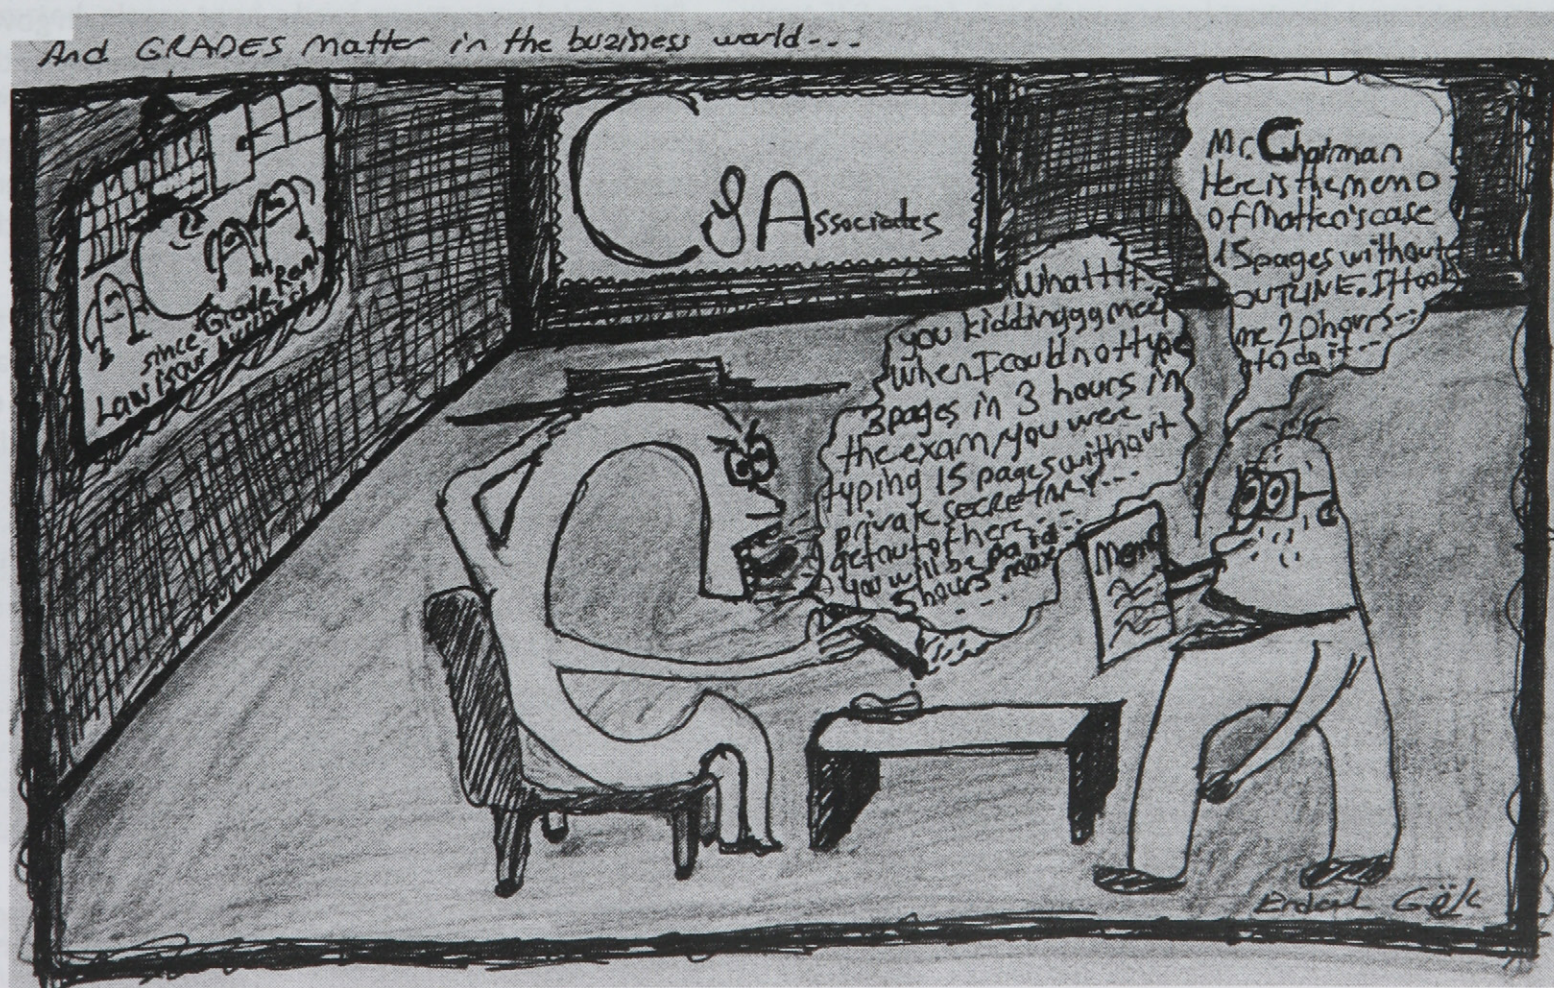 And GRADES matter in the business world---
C & Associates
Since Grade Ren
Law is our business
Mr. Chairman
Here is the memo
of Matteo's case
15 pages without
OUTLINE. I took
me 20 hours---
to do it--
What!!!
you kiddinggg me?
when I could not type
3 pages in 3 hours in
the exam, you were
typing 15 pages without
private SECRETARY---
get out of here---
you will be paid--
5 hours max
----
Memo
Erdal Gök